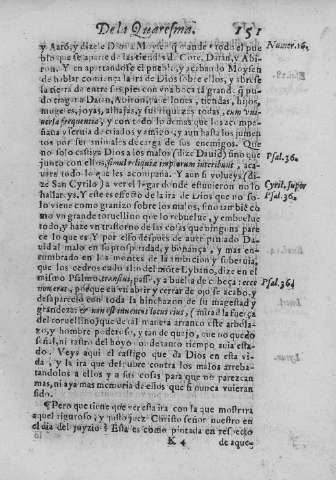 De la Quaresma. 151
y Aarõ, y dizele Dios a Moysen q̃ mande a todo el pue
blo que se aparte de las tiendas de Core, Datan, y Abi-
ron. Y en apartandose el pueblo, y acabando Moysen
de hablar comiença la ira de Dios sobre ellos, y abrese
la tierra de entre sus pies con vna boca tan grande, q̃ pu-
do tragar a Datan, Abiron, pauellones, tiendas, hijos,
mugeres, joyas, alhajas, y sus riquezas todas, cum vni-
uersa frequentia, y con todo lo demas que los acompa-
ñaua y seruia de criados y amigos, y aun hasta los jumen
tos por ser animales de carga de sus enemigos. Que
no solo castiga Dios a los malos (dize Dauid) sino que
junto con ellos, simul reliquiæ impiorum interibunt, aca-
uase todo lo que les acompaña. Y aun si bolueys (di
ze San Cyrilo) a ver el lugar donde estuuieron no lo
hallareys. Y este es effecto de la ira de Dios que no so-
lo viene como yelo sobre los malos, sino tambiẽ co
mo vn grande toruellino que lo rebuelue, y embuelue
todo, y haze vn trastorno de las cosas que ninguna pare
ce lo que es Y por esso despues de auer pintado Da-
uid al malo en su prosperidad, y bonança, y mas en-
cumbrado en los montes de la ambicion y soberuia,
que los cedros en lo alto del mõte Lybano, dize en el
mismo Psalmo, transiui, passè, y a buelta de cabeça: ecce
non erat, porque en vn abrir y cerrar de ojo se acabo, y
desaparecio con toda la hinchazon de su magestad y
grandeza: & non est inuentus locus eius, (mirad la fuerça
del toruellino) que de tal manera arranco este arbola-
zo, y hombre poderoso, y tan de quijo, que no quedo
señal, ni rastro del hoyo do tanto tiempo auia esta-
do. Veys aqui el castigo que da Dios en esta vi-
da, y la ira que descubre contra los malos arreba-
tandolos a ellos y a sus cosas para que no parezcan
mas, ni aya mas memoria de ellos que si nunca vuieran
sido.
¶ Pero que tiene que ver esta ira con la que mostrara
aquel riguroso, y justo juez Christo señor nuestro en
el dia del juyzio? Esta es como pintada en respecto
K 4 de aque-
Numer. 16.
Psal. 36.
Cyril. super
Psal. 36.
Psal. 36.